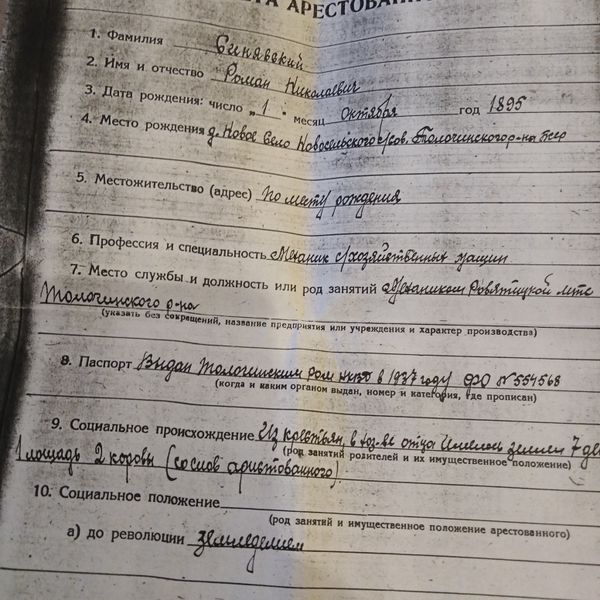 АРЕСТОВАНН
1. Фамилия Синявский
2. Имя и отчество Роман Николаевич
3. Дата рождения: число „1" месяц Октября год 1895
4. Место рождения д. Новое Село Новосельского с/сов. Толочинского р-на БССР
5. Местожительство (адрес) По месту рождения
6. Профессия и специальность Механик с/хозяйственных машин
7. Место службы и должность или род занятий Механиком мтс
Толочинского р-на
(указать без сокращений, название предприятия или учреждения и характер производства)
8. Паспорт Выдан Толочинским Ром НКВД в 1937 году ФО № 554568
(когда и каким органом выдан, номер и категория, где прописан)
9. Социальное происхождение Из крестьян, в хоз-ве отца Имелось земли 7 де
(род занятий родителей и их имущественное положение)
1 лошадь 2 коровы (со слов аристованного)
10. Социальное положение
(род занятий и имущественное положение арестованного)
а) до революции земледелием